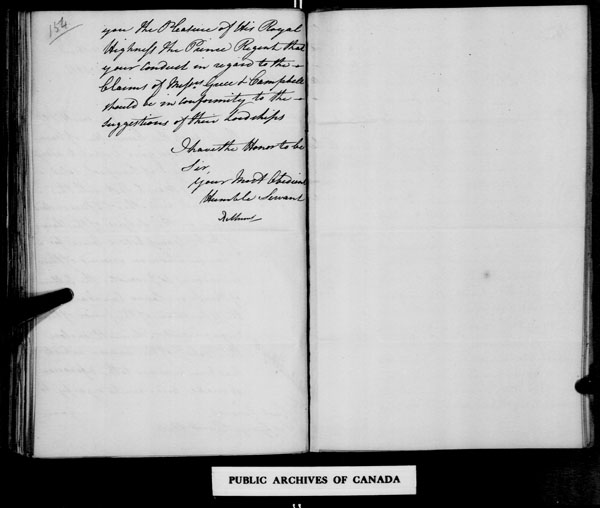 154
you the Pleasure of His Royal
Highness the Prince Regent that
your conduct in regard to the
Claims of Messrs. & Campbell
should be in conformity to the
suggestions of their Lordships
I have the Honor to be
Sir,
Your Most Obedient
Humble Servant
PUBLIC ARCHIVES OF CANADA